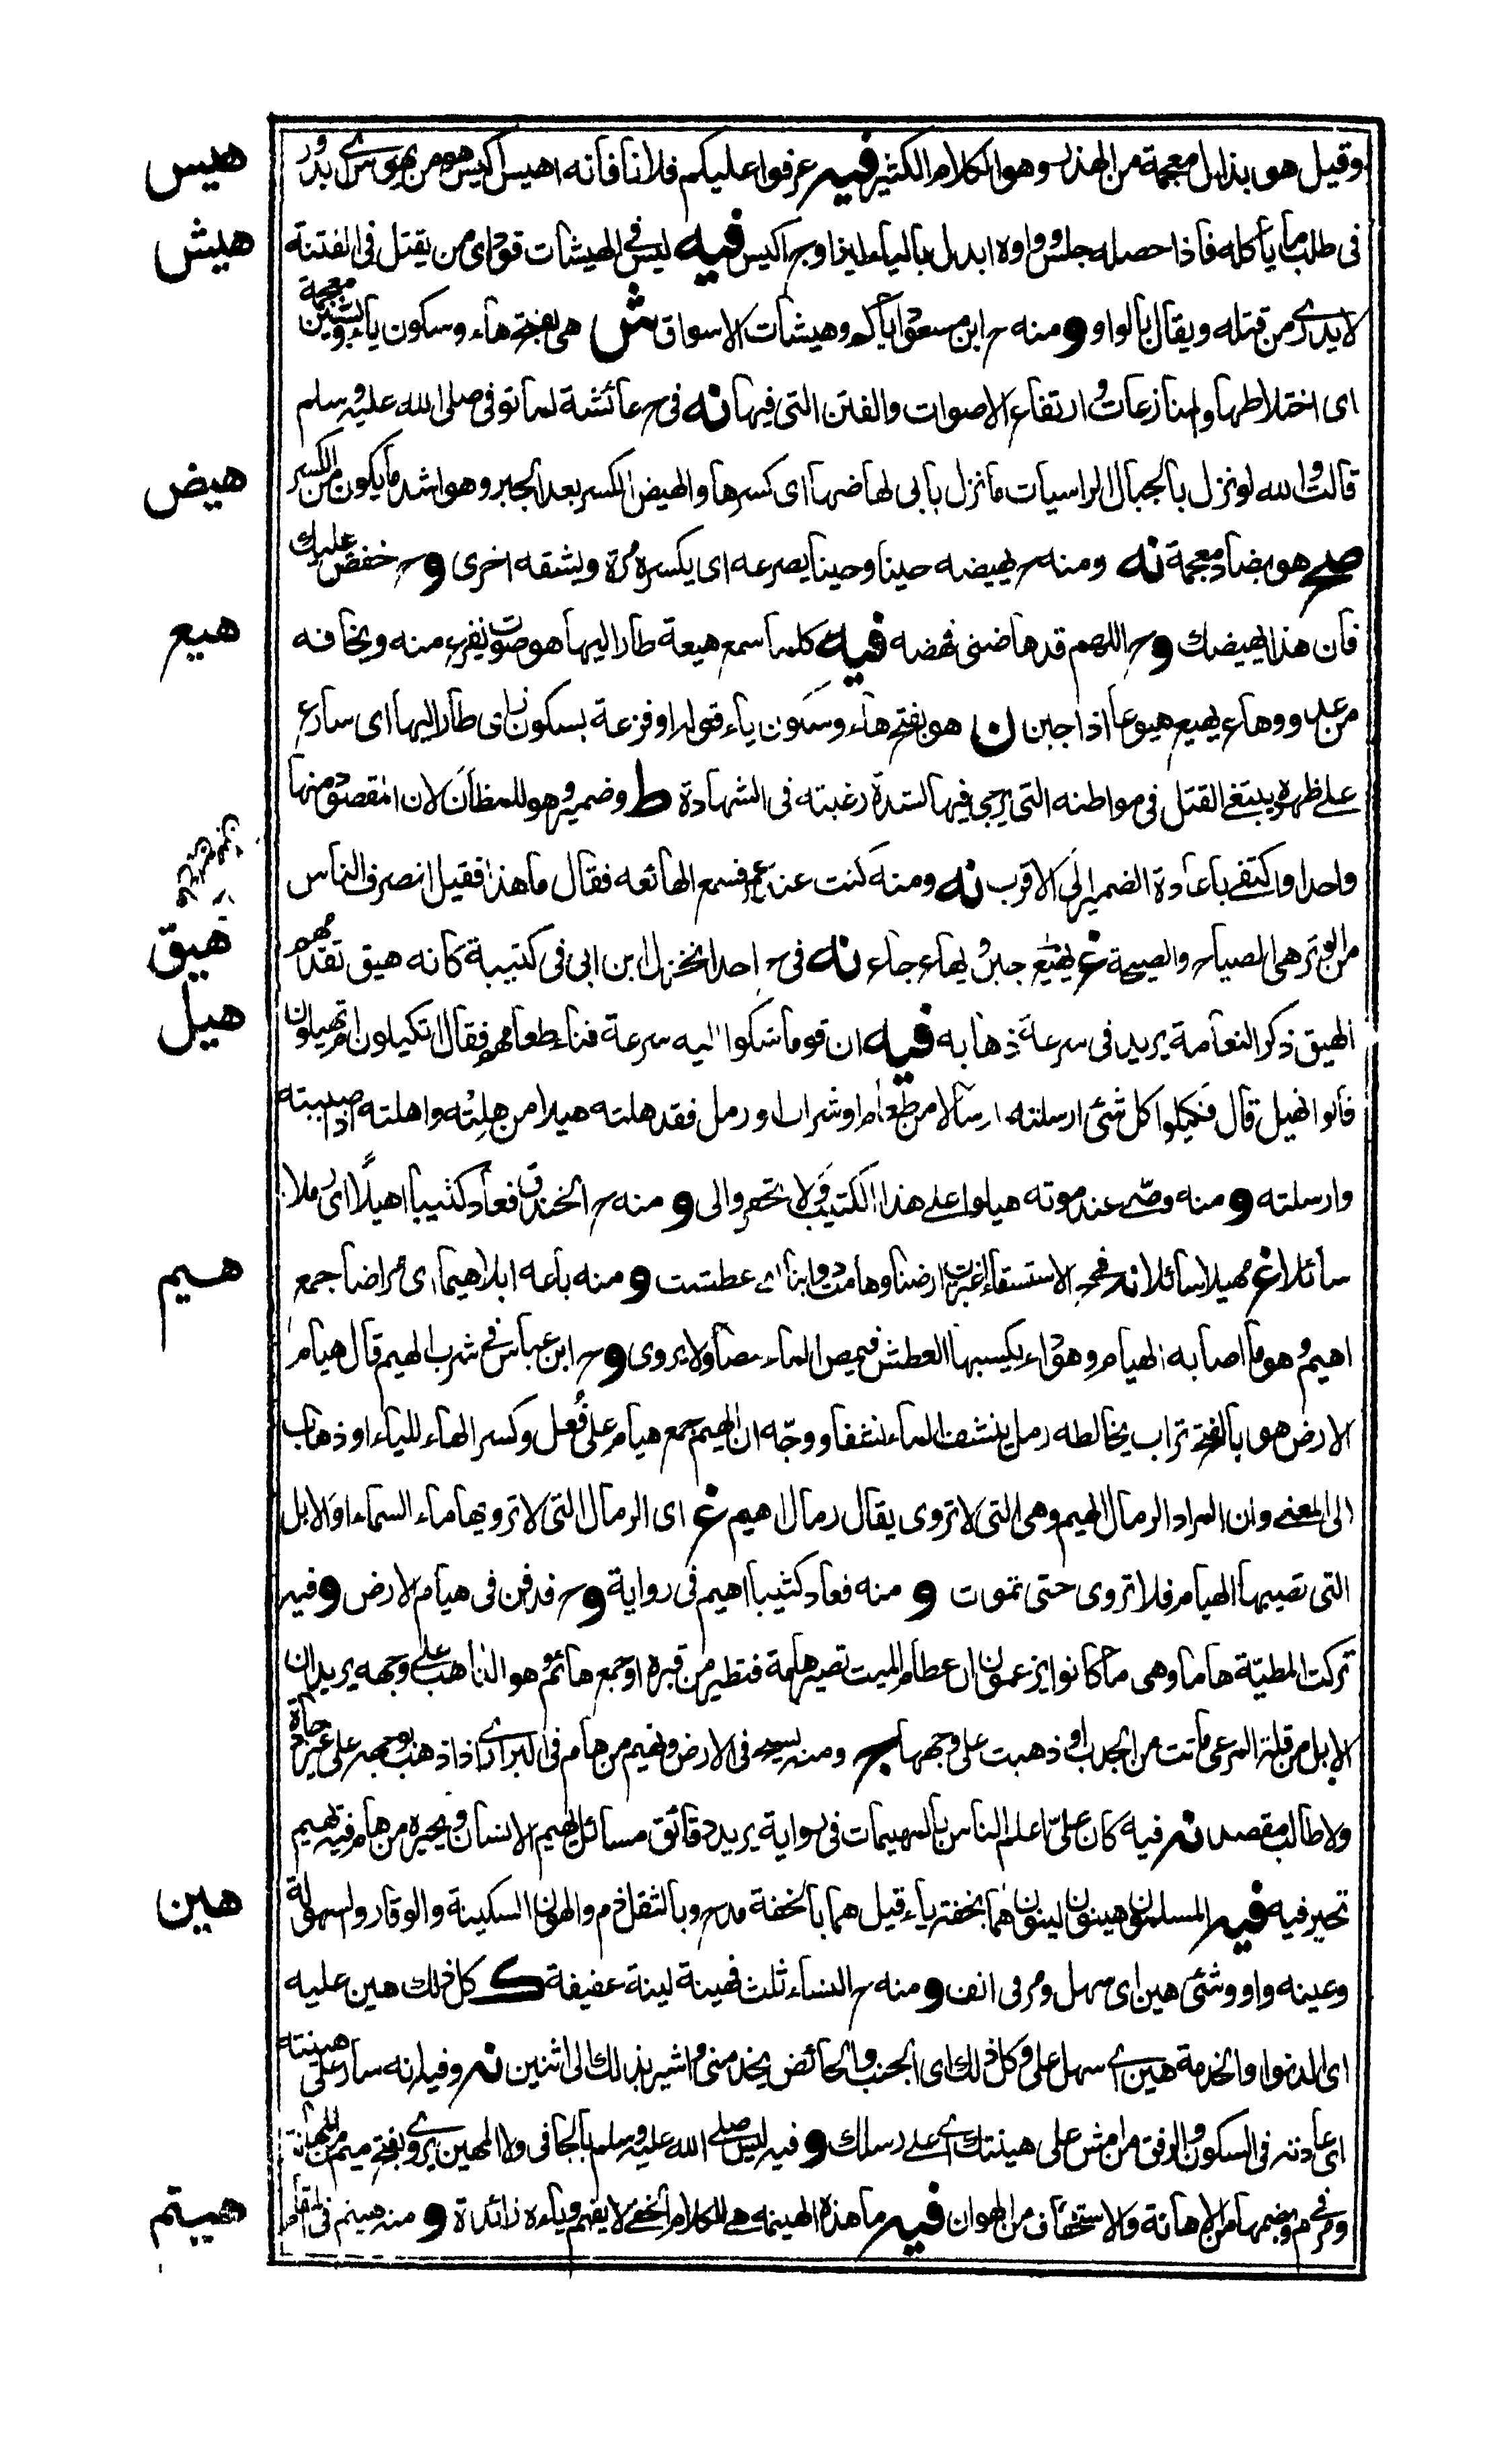 هيس
وقيل هو بذال معجمة من الهذر وهو الكلام الكثير فيه عرفوا عليكم فلانا فانه اهيس اكيس هو من يهوس اى يدور
هيش
فى طلب ما ياكله فاذا حصله جلس وواوه ابدل بالياء ليزاوج اكيس فيه ليس فى الهيشات قود اى من يقتل فى الفتنة
لا يدرى من قتله ويقال بالواو ومنه ح ابن مسعود اياكم وهيشات الاسواق ش هى بفتح هاء وسكون ياء وبشين معجمة
اى اختلاطها والمنازعات وارتفاع الاصوات والفتن التى فيها نه فى ح عائشة لما توفى صلى الله عليه وسلم
هيض
قالت والله لو نزل بالجبال الراسيات ما نزل بابى لهاضها اى كسرها والهيض الكسر بعد الجبر وهو اشد ما يكون من الكسر
صح هو بضاد معجمة نه ومنه ح يهيضه حينا وحينا يصرعه اى يكسره مرة ويشقه اخرى وح خفض عليك
هيع
فان هذا يهيضك وح اللهم قد هاضنى فهضه فيه كلما سمع هيعة طار اليها هو صوت يفزع منه ويخافه
من عدو وهاع يهيع هيوعا اذا جبن ن هو بفتح هاء وسكون ياء قوله او فزعة بسكون زاى طار اليها اى سارع
على ظهره ويبتغى القتل فى مواطنه التى يرجى فيها لشدة رغبته فى الشهادة ط وضميره هو للمظان لان المقصود منها
واحد او اكتفى باعادة الضمير الى الاقرب نه ومنه كنت عند عمر فسمع الهائعه فقال ما هذا فقيل انصرف الناس
هيق
من الوتر هى الصياح والصيحة غ يهيع جبن ويهاع جاع نه فى ح احد انخزل ابن ابى فى كتيبة كانه هيق تقدمهم
هيل
الهيق ذكر النعامة يريد فى سرعة ذهابه فيه ان قوما شكوا اليه سرعة فناء طعامهم فقال اتكيلون ام تهيلون
قالوا نهيل قال فكيلوا كل شئ ارسلته ارسالا من طعام او شراب او رمل فقد هلته هيلا من هلته واهلته اذا صببته
وارسلته ومنه وصى عند موته هيلوا على هذا الكثيب ولا تحفروا لى ومنه ح الخندق فعاد كثيبا اهيلا اى رملا
هيم
سائلا غ مهيلا سائلا نه فى ح الاستسقاء اغبرت ارضنا وهامت دوابنا اى عطشت ومنه باعه ابلا هيما اى مراضا جمع
اهيم وهو ما اصابه الهيام وهو داء يكسبها العطش فيمص الماء مصا ولا يروى وح ابن عباس فى شرب الهيم قال هيام
الارض هو بالفتح تراب يخالطه رمل ينشف الماء نشفا ووجه ان الهيم جمع هيام على فعل وكسر الهاء للياء او ذهاب
الى المعنى وان المراد الرمال الهيم وهى التى لا تروى يقال رمال هيم غ اى الرمال التى لا ترويها ماء السماء او الابل
التى تصيبها الهيام فلا تروى حتى تموت و منه فعاد كثيبا اهيم فى رواية وح فدفن فى هيام الارض وفيه
تركت المطية هاما وهى ما كانوا يزعمون ان عظام الميت تصير هامة فتطير من قبره او جمع هائم وهو الذاهب على وجهه يريد ان
الابل من قلة المرعى ماتت من الجدب او ذهبت على وجهها ج ومنه يسيح فى الارض ويهيم من هام فى البرارى اذا ذهب بوجهه على غير حاجة
ولا طالب مقصد نه فيه كان على اعلم الناس بالمهيمات فى رواية يريد دقائق مسائل تهيم الانسان ويحيره من هام فيه يهيم
هين
تحير فيه فيه المسلمون هينون لينون هما بخفة ياء قيل هما بالخفة مدح وبالثقل ذم والهون السكينة والوقار والسهولة
وعينه واو وشئ هين اى سهل ومر فى انف ومنه ح النساء ثلث فهينة لينة عفيفة ك كل ذلك هين عليه
اى الدنو او الخدمة هين اى سهل على وكل ذلك اى الجنب والحائض يخدمنى واشير بذلك الى اثنين نه وفيه انه سار على هينته
اى عادته فى السكون والرفق من امش على هينتك اى على رسلك وفيه ليس صلى الله عليه وسلم بالجافى ولا المهين يروى بفتح ميم من المهانة
هينم
ومر فى م وبضمها من الاهانة والاستخفاف من الهوان فيه ما هذه الهينمه هى الكلام الخفى لا يفهم وياءه زائدة و منه هينم فى المقام